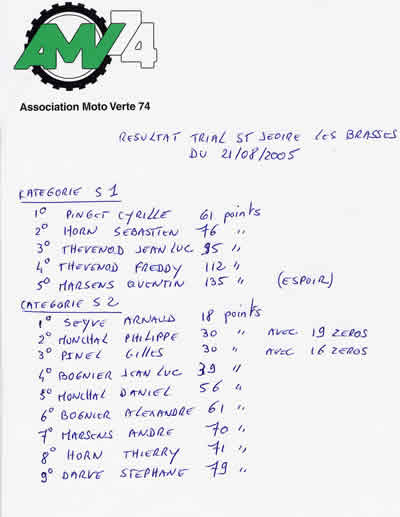 AMV74
Association Moto Verte 74
RESULTAT TRIAL ST JEOIRE LES BRASSES
DU 21/08/2005
KATEGORIE S1
1° PINGET CYRILLE 61 points
2° HORN SEBASTIEN 76 "
3° THEVENOD JEAN LUC 95 "
4° THEVENOD FREDDY 112 "
5° MARSENS QUENTIN 135 " (ESPOIR)
CATEGORIE S2
1° SEYVE ARNAUD 18 points
2° MONCHAL PHILIPPE 30 " AVEC 19 ZEROS
3° PINEL GILLES 30 " AVEC 16 ZEROS
4° BOGNIER JEAN LUC 39 "
5° MONCHAL DANIEL 56 "
6° BOGNIER ALEXANDRE 61 "
7° MARSENS ANDRE 70 "
8° HORN THIERRY 71 "
9° DARVE STEPHANE 79 "